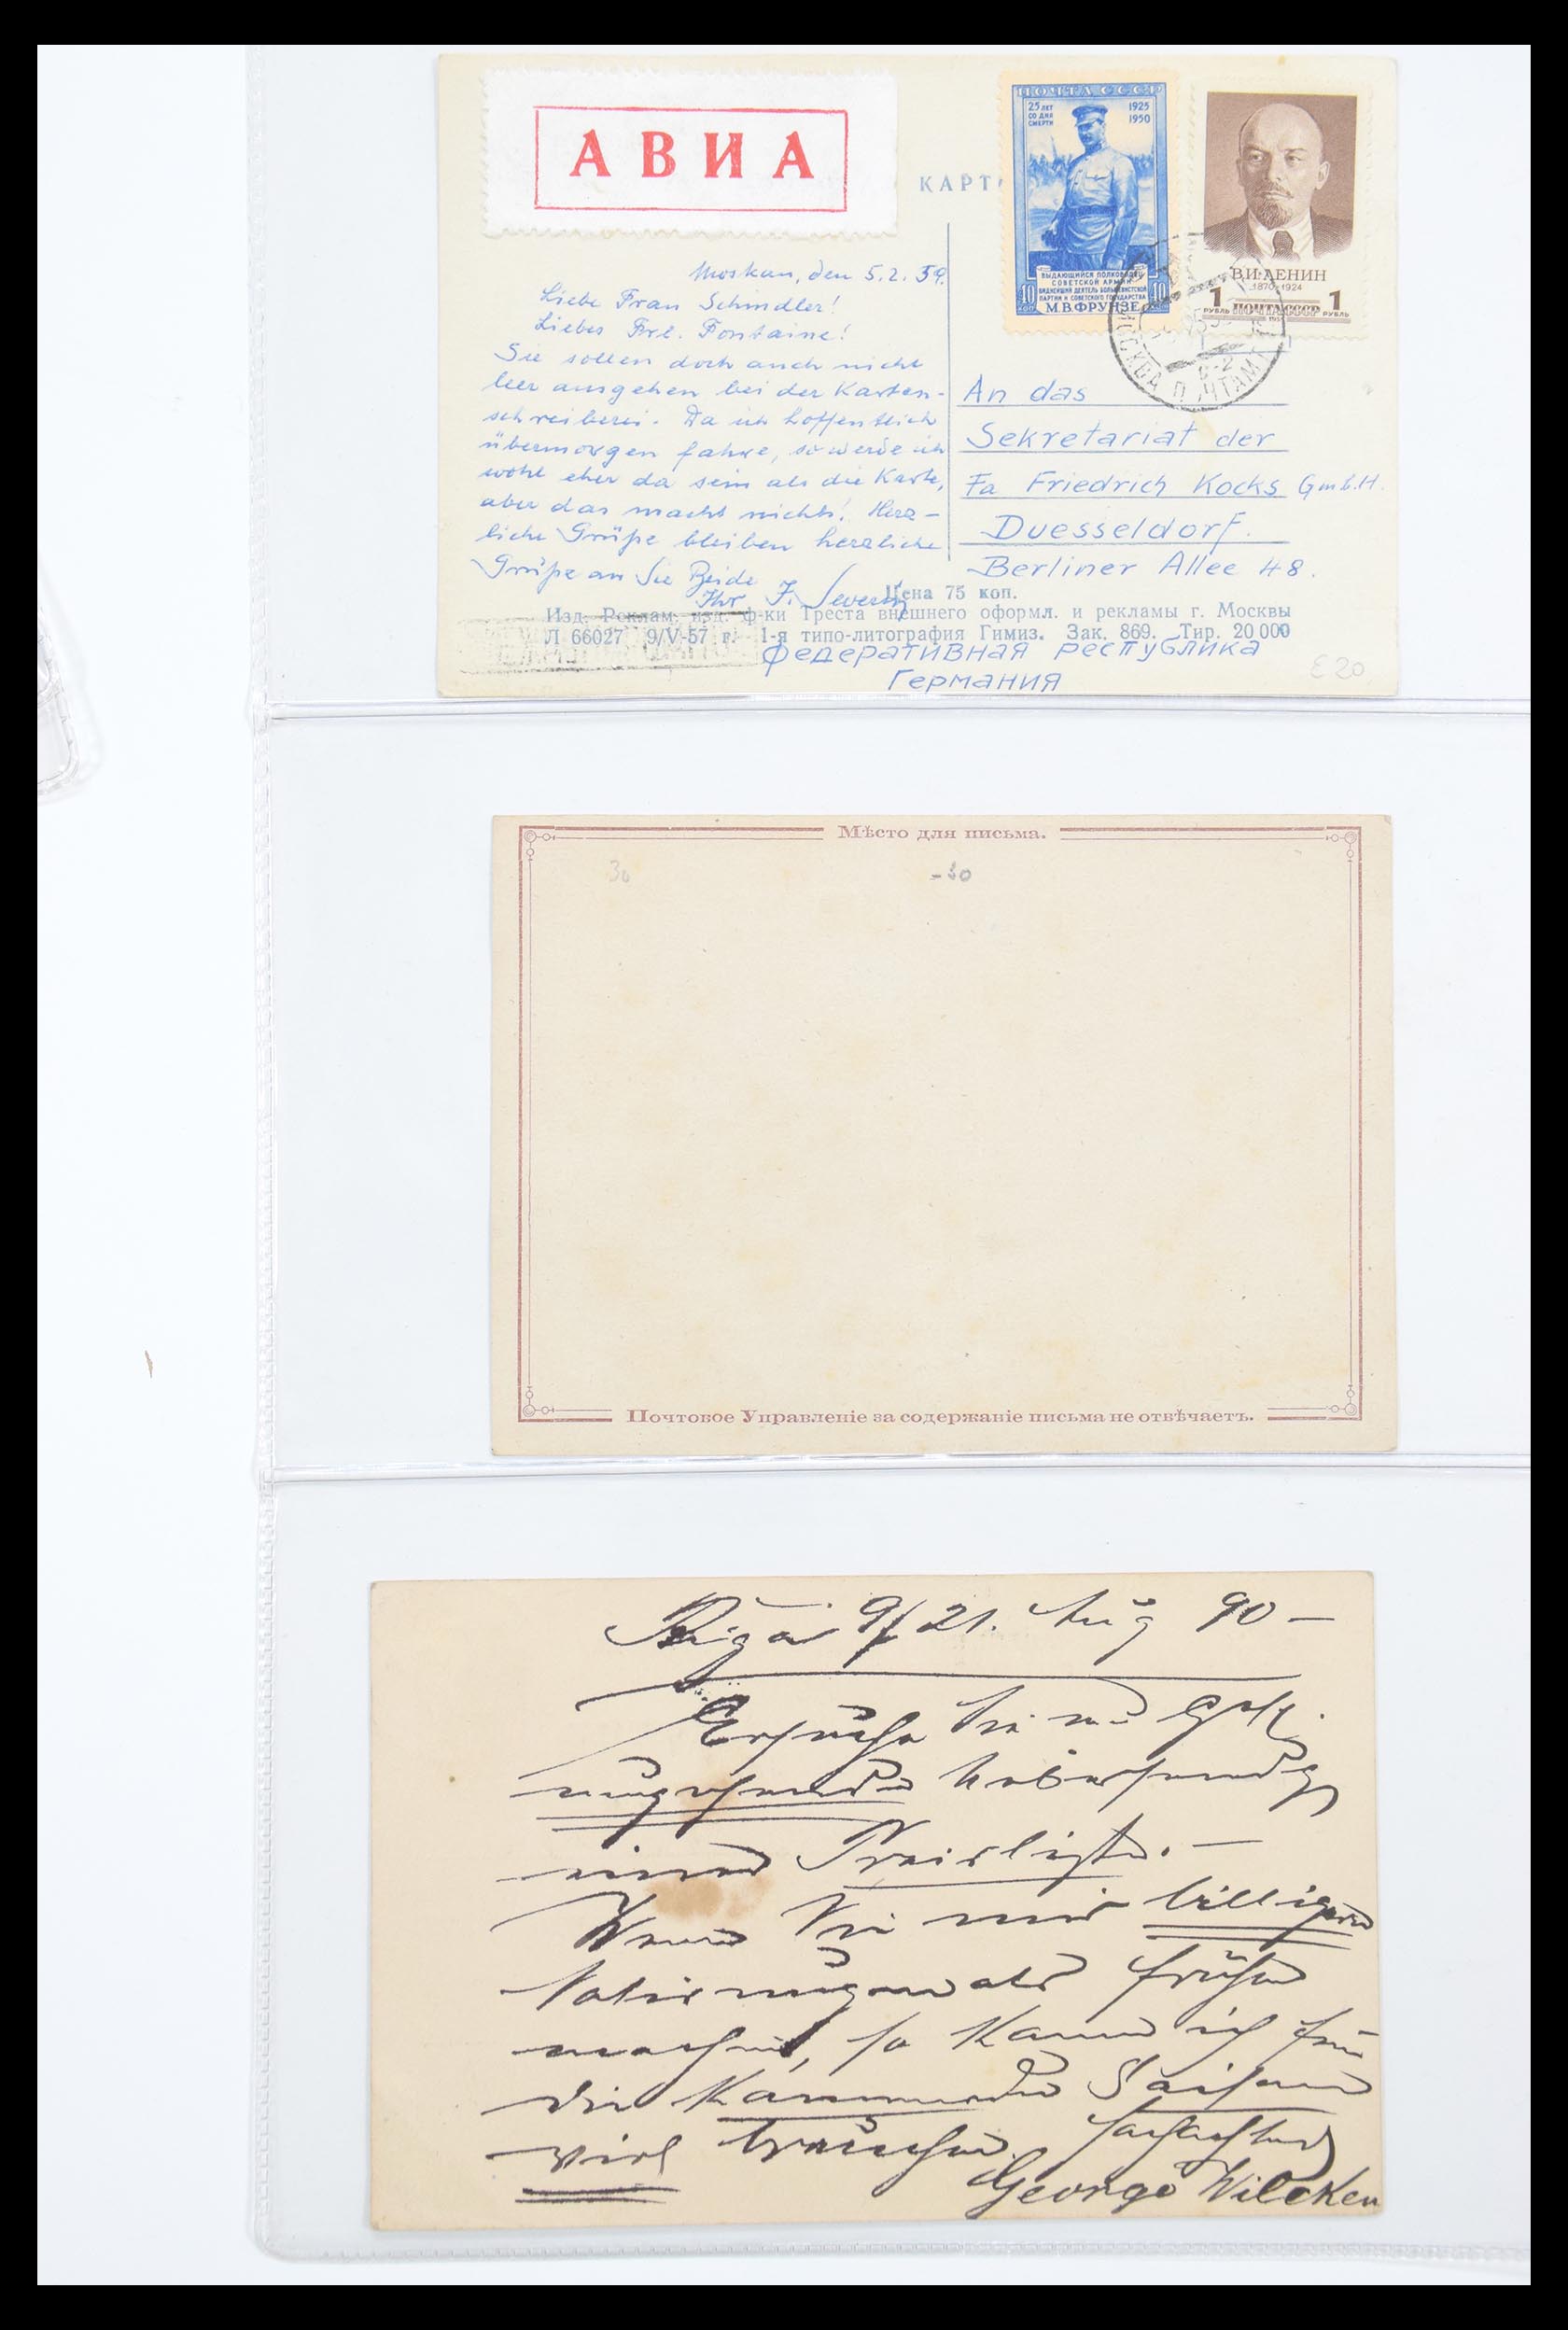 АВИА
КАРТ
ПОЧТА СССР
25 ЛЕТ СО ДНЯ СМЕРТИ
1925 1950
ВЫДАЮЩИЙСЯ ПОЛКОВОДЕЦ
СОВЕТСКОЙ АРМИИ
ВИДНЕЙШИЙ ДЕЯТЕЛЬ БОЛЬШЕВИСТСКОЙ
ПАРТИИ И СОВЕТСКОГО ГОСУДАРСТВА
М.В.ФРУНЗЕ
10 10
В.И.ЛЕНИН
1870-1924
1 РУБЛЬ ПОЧТА СССР 1 РУБЛЬ
МОСКВА
Moskau, den 5.2.59.
Liebe Frau Schindler!
Liebes Frl. Fontaine!
Sie sollen doch auch nicht
leer ausgehen bei der Karten-
schreiberei. Da ich hoffentlich
übermorgen fahre, so werde ich
wohl eher da sein als die Karte,
aber das macht nichts! Herz-
liche Grüße bleiben herzliche
Grüße an Sie Beide
Ihr J. Severin
An das
Sekretariat der
Fa Friedrich Kocks GmbH.
Duesseldorf.
Berliner Allee 48.
Цена 75 коп.
Изд. Реклам. изд. ф-ки Треста внешнего оформл. и рекламы г. Москвы
Л 66027 9/V-57 г. 1-я типо-литография Гимиз. Зак. 869. Тир. 20 000
Федеративная республика
Германия
E20
Мѣсто для письма.
30
-30
Почтовое Управленіе за содержаніе письма не отвѣчаетъ.
Riga 9/21. Aug 90 —
Ersuche Sie um Gefl.
umgehende Uebersendg
einer Preisliste. —
Wenn Sie mir billigere
Notirungen als früher
machen, so kann ich für
die kommende Saison
viel brauchen.
George Wilcken